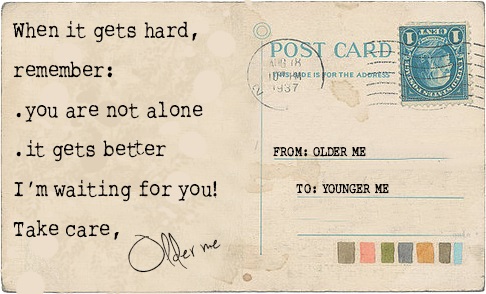 When it gets hard,
remember:
.you are not alone
.it gets better
I'm waiting for you!
Take care,
Older me
POST CARD
THIS SIDE IS FOR THE ADDRESS
AUG 18
1937
1
1
FROM: OLDER ME
TO: YOUNGER ME